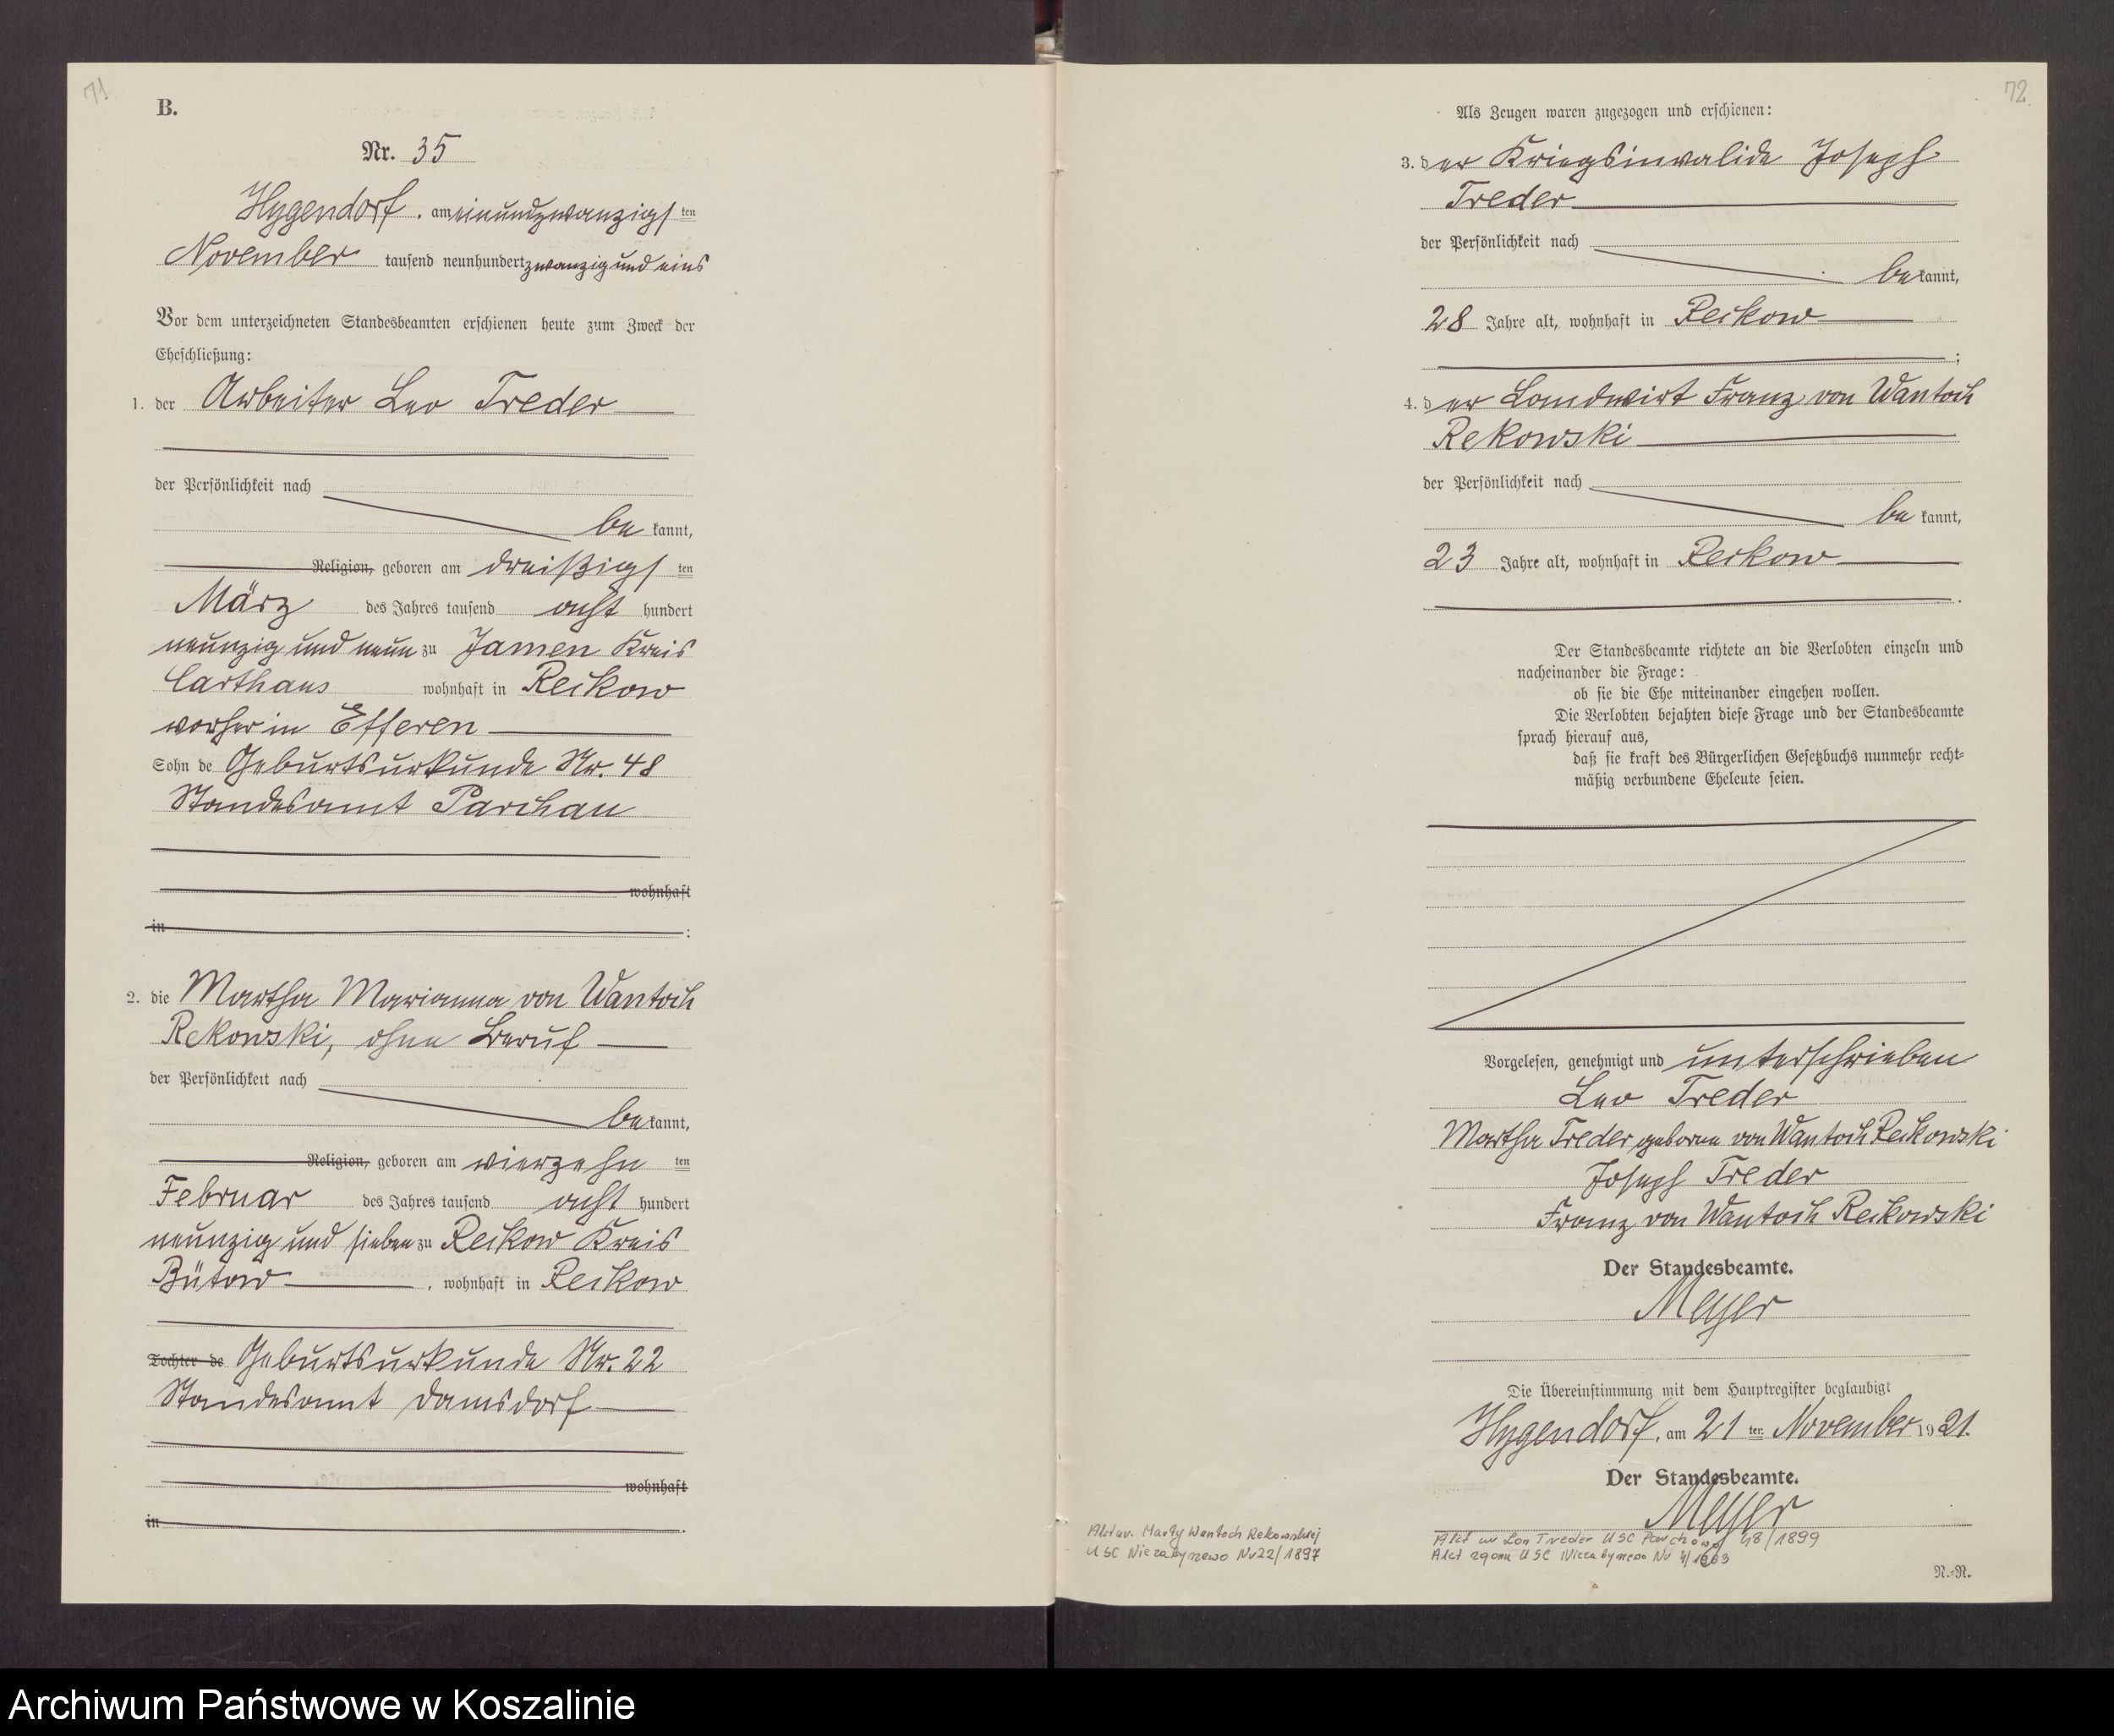 71
B.
Nr. 35
Hygendorf, am einundzwanzigsten
November tausend neunhundert zwanzig und eins
Vor dem unterzeichneten Standesbeamten erschienen heute zum Zweck der
Eheschließung:
1. der Arbeiter Leo Treder
der Persönlichkeit nach
bekannt,
Religion, geboren am dreißigsten
März des Jahres tausend acht hundert
neunzig und neun zu Jamen Kreis
Carthaus wohnhaft in Reckow
vorher in Efferen
Sohn de Geburtsurkunde Nr. 48
Standesamt Parchau
wohnhaft
in :
2. die Martha Marianna von Wantoch
Rekowski, ohne Beruf
der Persönlichkeit nach
bekannt,
Religion, geboren am vierzehnten
Februar des Jahres tausend acht hundert
neunzig und sieben zu Reckow Kreis
Bütow, wohnhaft in Reckow
Tochter de Geburtsurkunde Nr. 22
Standesamt Damsdorf
wohnhaft
in .
72
Als Zeugen waren zugezogen und erschienen:
3. der Kriegsinvalide Joseph
Treder
der Persönlichkeit nach
bekannt,
28 Jahre alt, wohnhaft in Reckow
;
4. der Landwirt Franz von Wantoch
Rekowski
der Persönlichkeit nach
bekannt,
23 Jahre alt, wohnhaft in Reckow
.
Der Standesbeamte richtete an die Verlobten einzeln und
nacheinander die Frage:
ob sie die Ehe miteinander eingehen wollen.
Die Verlobten bejahten diese Frage und der Standesbeamte
sprach hierauf aus,
daß sie kraft des Bürgerlichen Gesetzbuchs nunmehr recht-
mäßig verbundene Eheleute seien.
Vorgelesen, genehmigt und unterschrieben
Leo Treder
Martha Treder geborene von Wantoch Reckowski
Joseph Treder
Franz von Wantoch Reckowski
Der Standesbeamte.
Meyer
Die Übereinstimmung mit dem Hauptregister beglaubigt
Hygendorf, am 21ten November 1921.
Der Standesbeamte.
Meyer
Akt ur. Marty Wantoch Rekowskiej
USC Niezabyszewo Nr 22/1897
Akt ur Leon Treder USC Parchowo 48/1899
Akt zgonu USC Niezabyszewo Nr
N.-R.
Archiwum Państwowe w Koszalinie